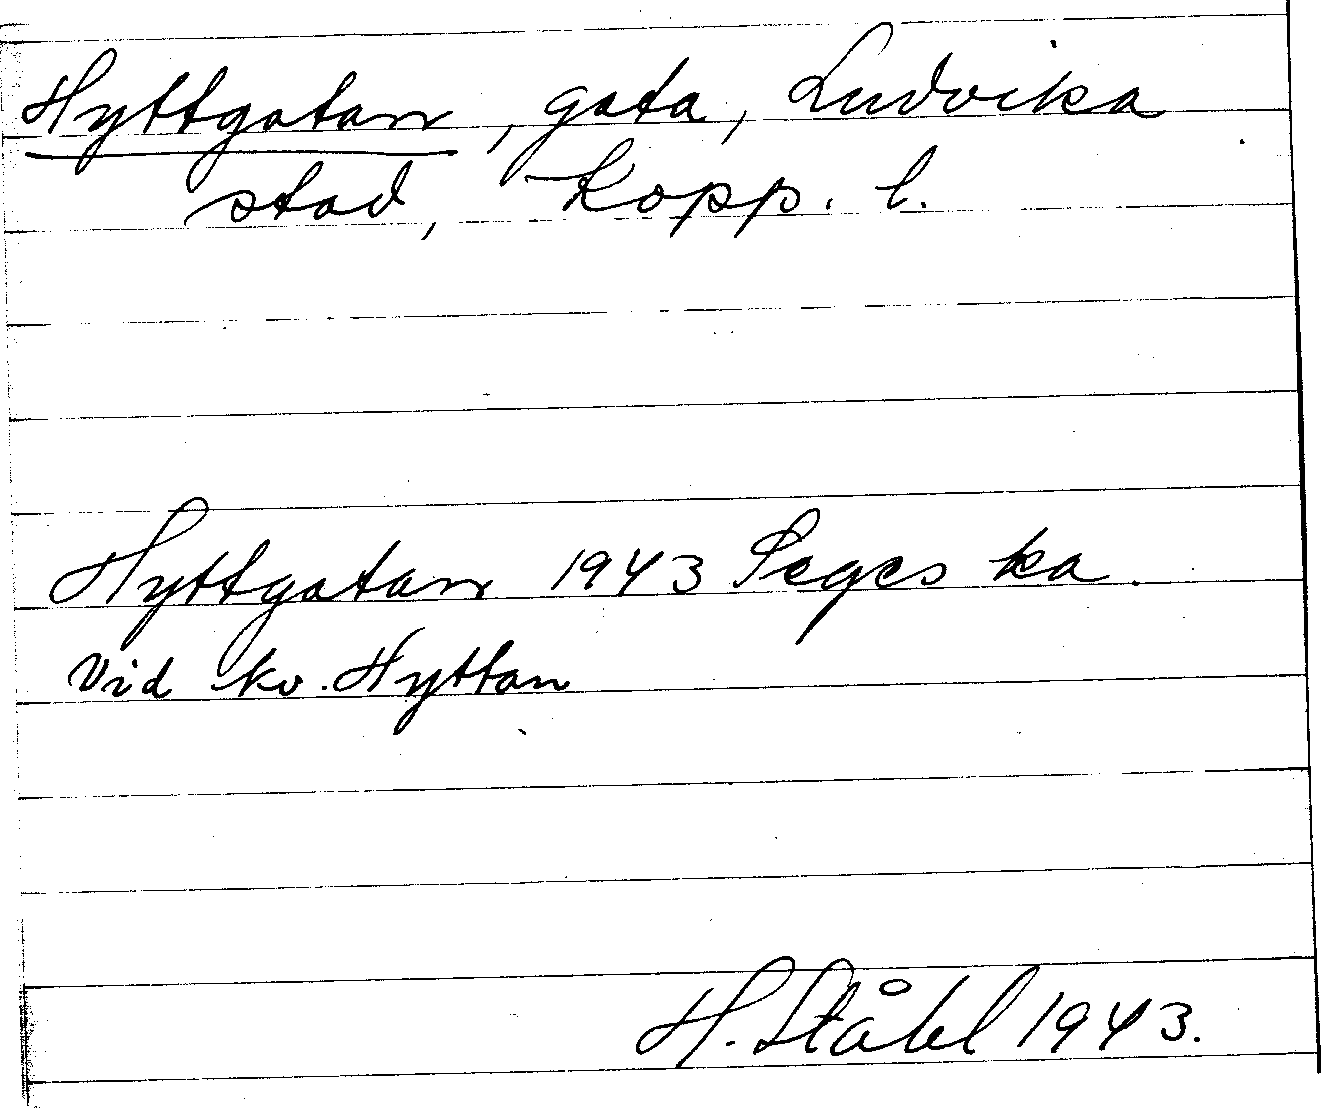 Hyttgatan, gata, Ludvika
stad, Kopp. l.
Hyttgatan 1943 Seges ka.
Vid kv. Hyttan
H. Ståhl 1943.